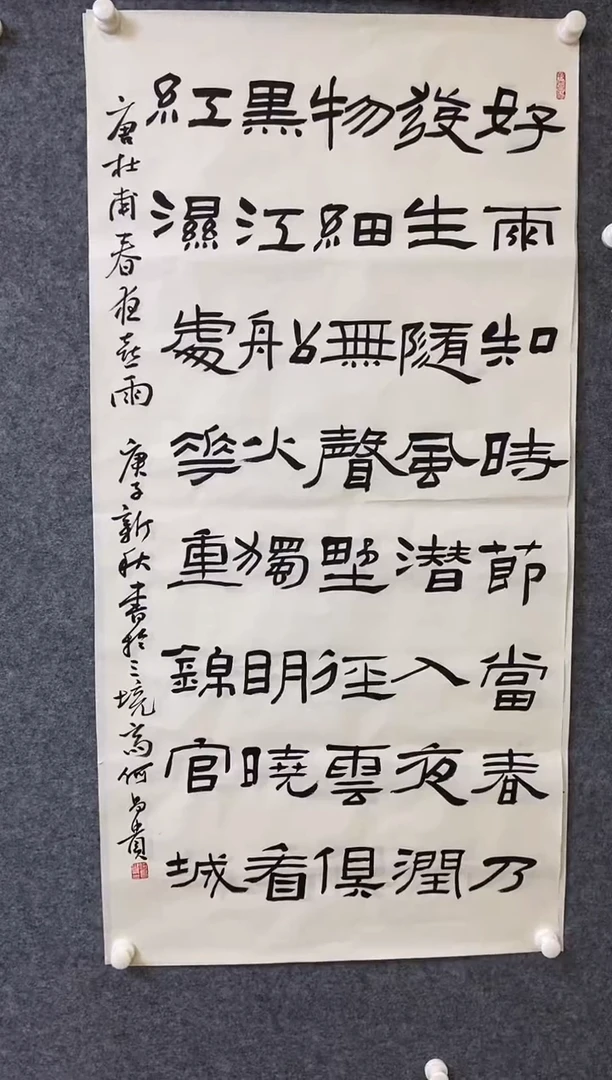 好雨知時節當春乃
發生隨風潛入夜潤
物細無聲野徑雲俱
黑江船火獨明曉看
紅濕處花重錦官城
唐杜甫春夜喜雨 庚子新秋書於三境